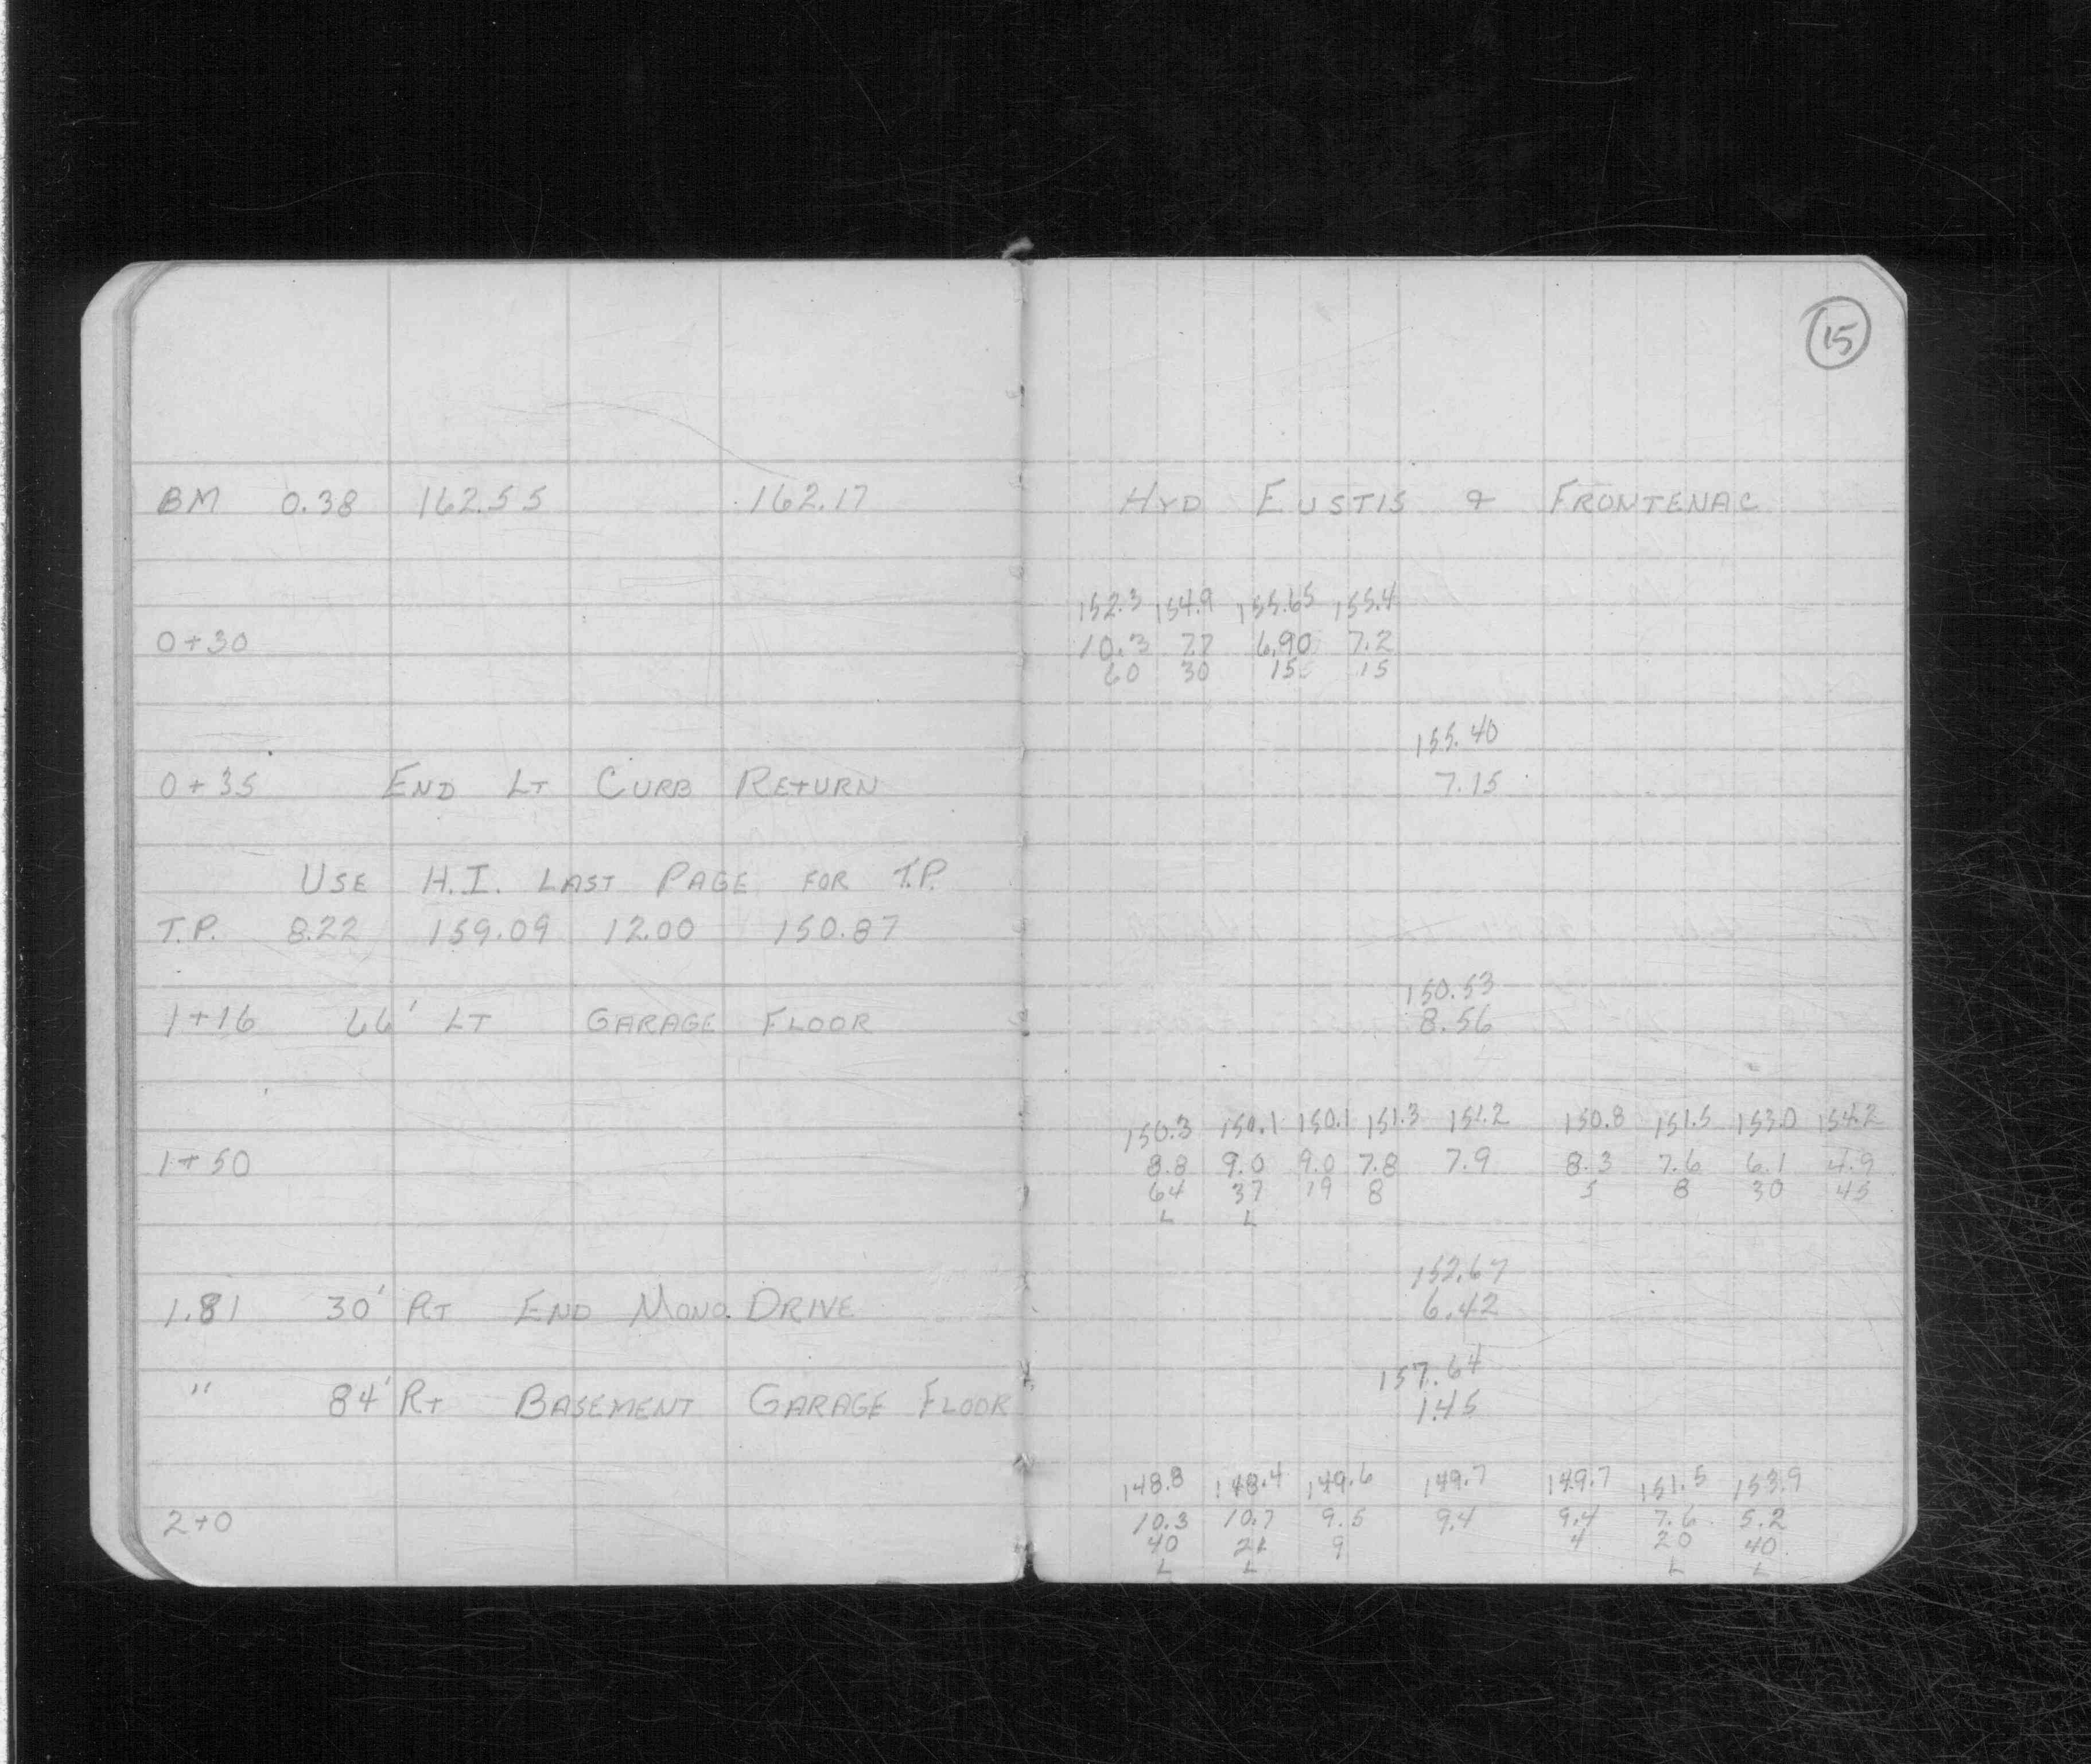 15
BM 0.38 162.55 162.17 HYD EUSTIS & FRONTENAC
152.3 154.9 155.65 155.4
0+30 10.3 7.7 6.90 7.2
60 30 15 15
155.40
0+35 END LT CURB RETURN 7.15
USE H.I. LAST PAGE FOR T.P.
T.P. 8.22 159.09 12.00 150.87
150.53
1+16 66' LT GARAGE FLOOR 8.56
150.3 150.1 150.1 151.3 151.2 150.8 151.5 153.0 154.2
1+50 8.8 9.0 9.0 7.8 7.9 8.3 7.6 6.1 4.9
64 37 19 8 5 8 30 45
L L
152.67
1.81 30' RT END MONO. DRIVE 6.42
157.64
" 84' RT BASEMENT GARAGE FLOOR 1.45
148.8 148.4 149.6 149.7 149.7 151.5 153.9
2+0 10.3 10.7 9.5 9.4 9.4 7.6 5.2
40 9 4 20 40
L L L L